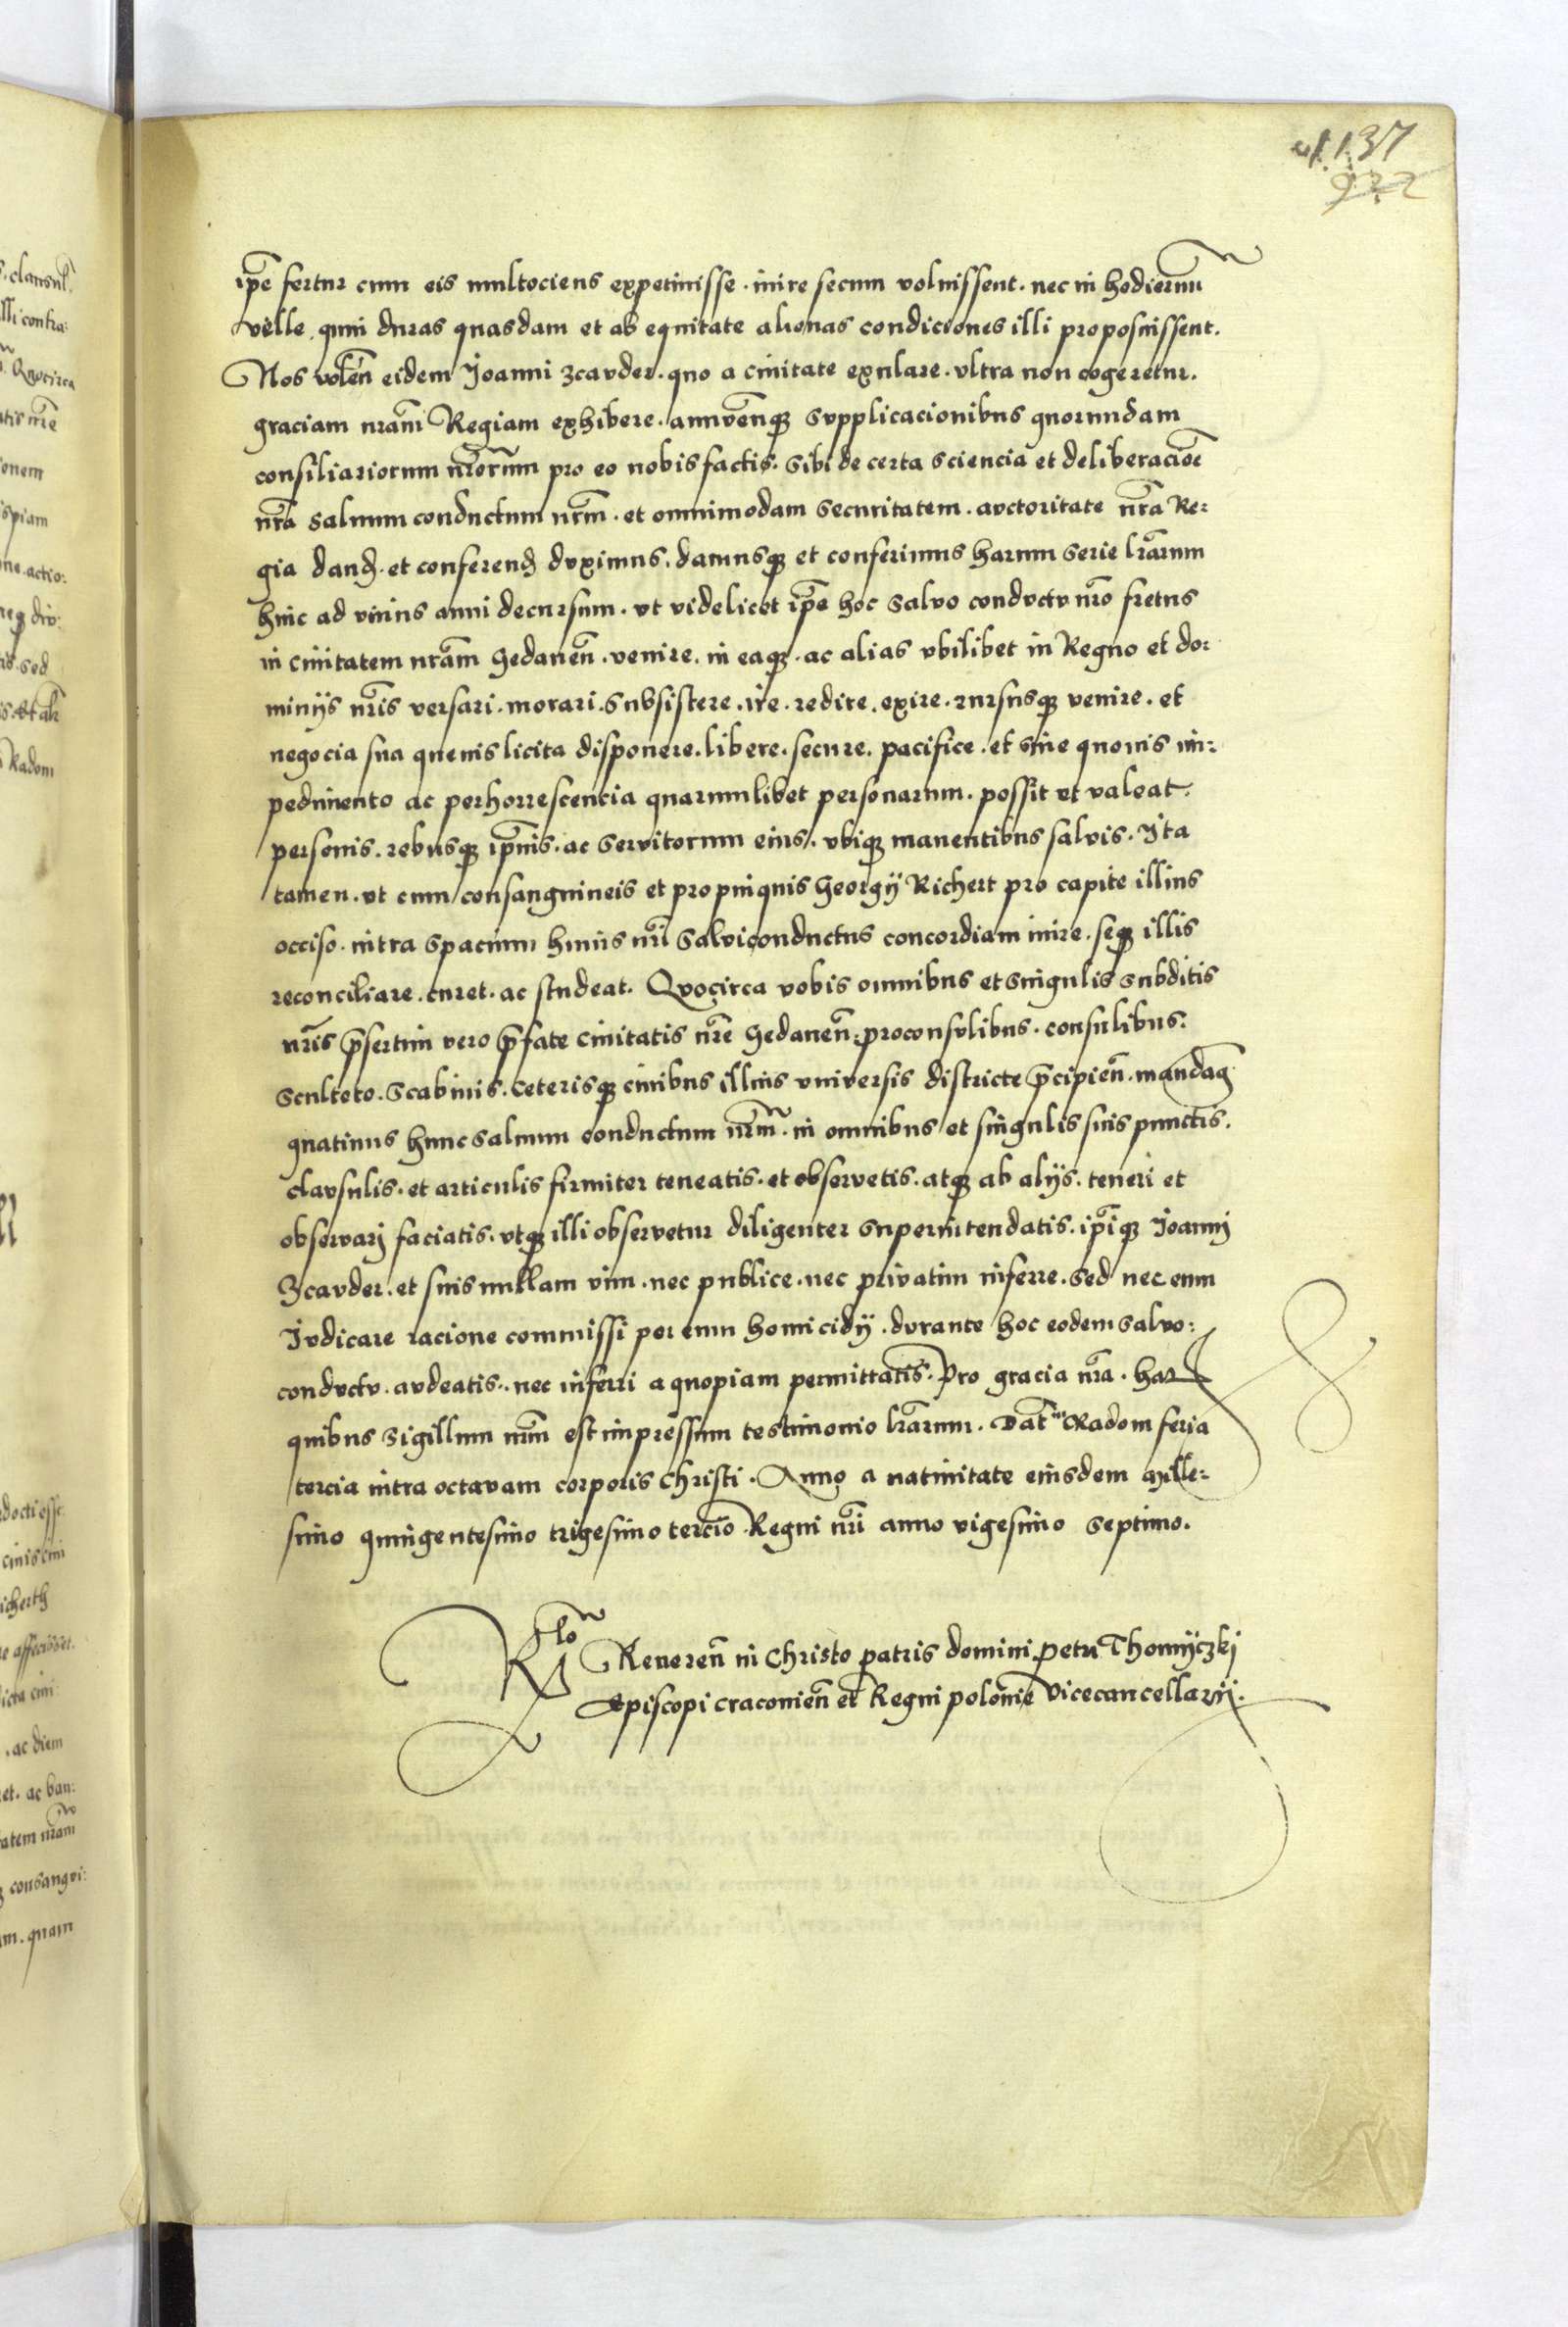 137
922
ip̃e fertur cum eis multociens expetivisse . inire secum voluissent . nec in hodiernũ
velle . quin duras quasdam et ab equitate alienas condiciones illi proposuissent .
Nos volen̄ eidem Joanni Zcavder . quo a civitate exulare . vltra non cogeretur .
graciam nr̃am Regiam exhibere . annuen̄q3 supplicacionibus quorumdam
consiliariorum nr̃orum pro eo nobis factis . Sibi de certa sciencia et deliberacõe
nr̃a salvum conductum nr̃m . et omnimodam securitatem . avctoritate nr̃a Re:
gia dand̃ . et conferend̃ duximus . damusq3 et conferimus harum serie lr̃arum
hinc ad vnius anni decursum . vt videlicet ip̃e hoc salvo conductu nr̃o fretus
in civitatem nr̃am Gedanen̄ . venire . in eaq3 . ac alias vbilibet in Regno et do:
minijs nr̃is versari . morari . subsistere . ire . redire . exire . rursusq3 venire . et
negocia sua quevis licita disponere . libere . secure . pacifice . et sine quovis im:
pedimento ac perhorrescencia quarumlibet personarum . possit et valeat .
personis . rebusq3 ip̃ius . ac servitorum eius . vbiq3 manentibus salvis . Ita
tamen . vt cum consanguineis et propinquis Georgij Richert pro capite illius
occiso . intra spacium huius nr̃i salviconductus concordiam inire . seq3 illis
reconciliare . curet . ac studeat . Quocirca vobis omnibus et singulis subditis
nr̃is p̃sertim vero p̃fate civitatis nr̃e Gedanen̄ . proconsulibus . consulibus .
sculteto . scabinis . ceterisq3 civibus illius vniversis districte p̃cipien̄ . mandam̃
quatinus hunc salvum conductum nr̃m . in omnibus et singulis suis punctis .
clausulis . et articulis firmiter teneatis . et observetis . atq3 ab alijs . teneri et
observarj faciatis . vtq3 illi observetur diligenter superintendatis . ip̃iq3 Joannj
Zcavder . et suis nullam vim . nec publice . nec privatim inferre . sed nec eum
Judicare racione commissi per eum homicidij . durante hoc eodem salvo:
conductu . audeatis . nec inferri a quopiam permittatis . Pro gracia nr̃a . har̃
quibus sigillum nr̃m est impressum testimonio lr̃arum . Dat̃ Radom feria
tercia intra octavam corporis Christi . Anno a nativitate eiusdem mille:
simo quingentesimo trigesimo tercio . Regni nr̃i anno vigesimo septimo .
Rlõ Reveren̄ in Christo patris domini Petri Thomijczkj
Episcopi cracovien̄ et Regni polonie Vicecancellarij .